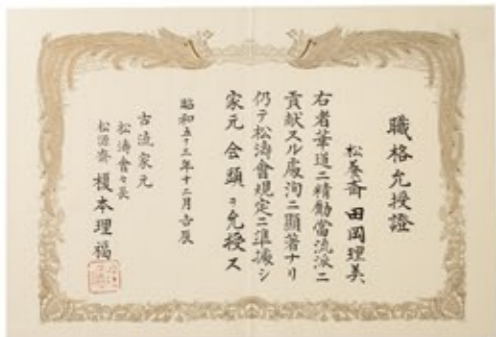 職格允授證
松養斎 田岡理美
右者華道ニ精勵當流派ニ
貢献スル處洵ニ顕著ナリ
仍テ松濤會規定ニ準據シ
家元 会頭 ヲ允授ス
昭和五十三年十二月吉辰
古流家元
松濤會々長
松源斎 榎本理福